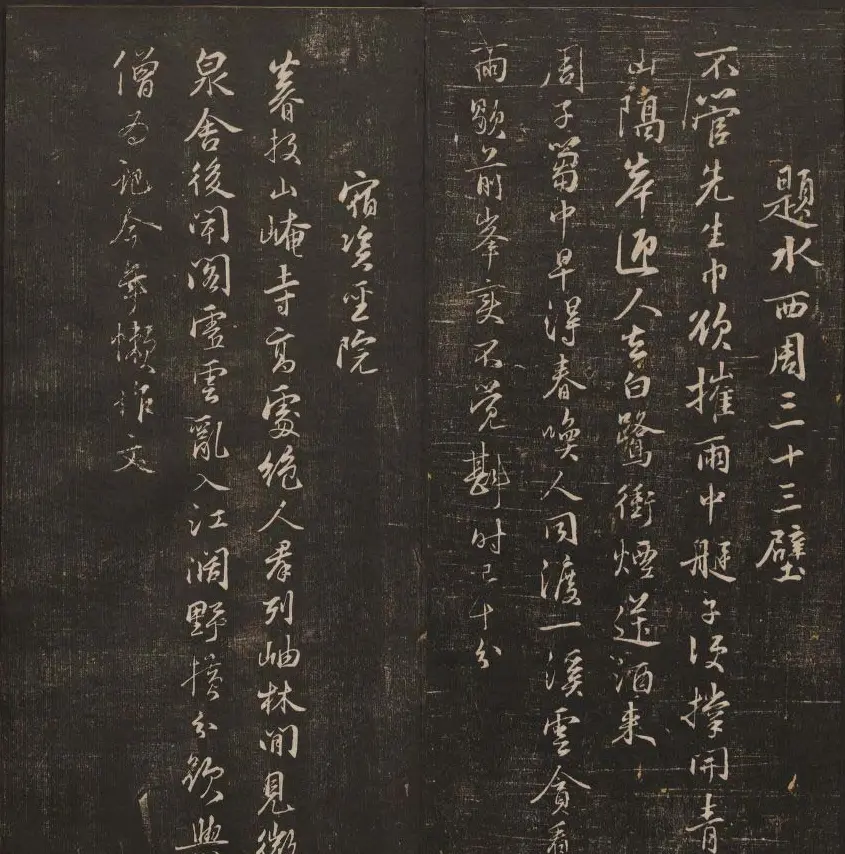 題水西周三十三壁
不管先生巾欲摧雨中艇子便撑開青
山隔岸迎人去白鷺衝煙送酒来
周子篘中早得春喚人同渡一溪雲貪看
雨歇前峯変不覺斟时已十分
宿資聖院
暮投山崦寺高處絶人羣列岫林間見微
泉舍後聞閣虛雲亂入江闊野横分欲與
僧為記今年懶作文